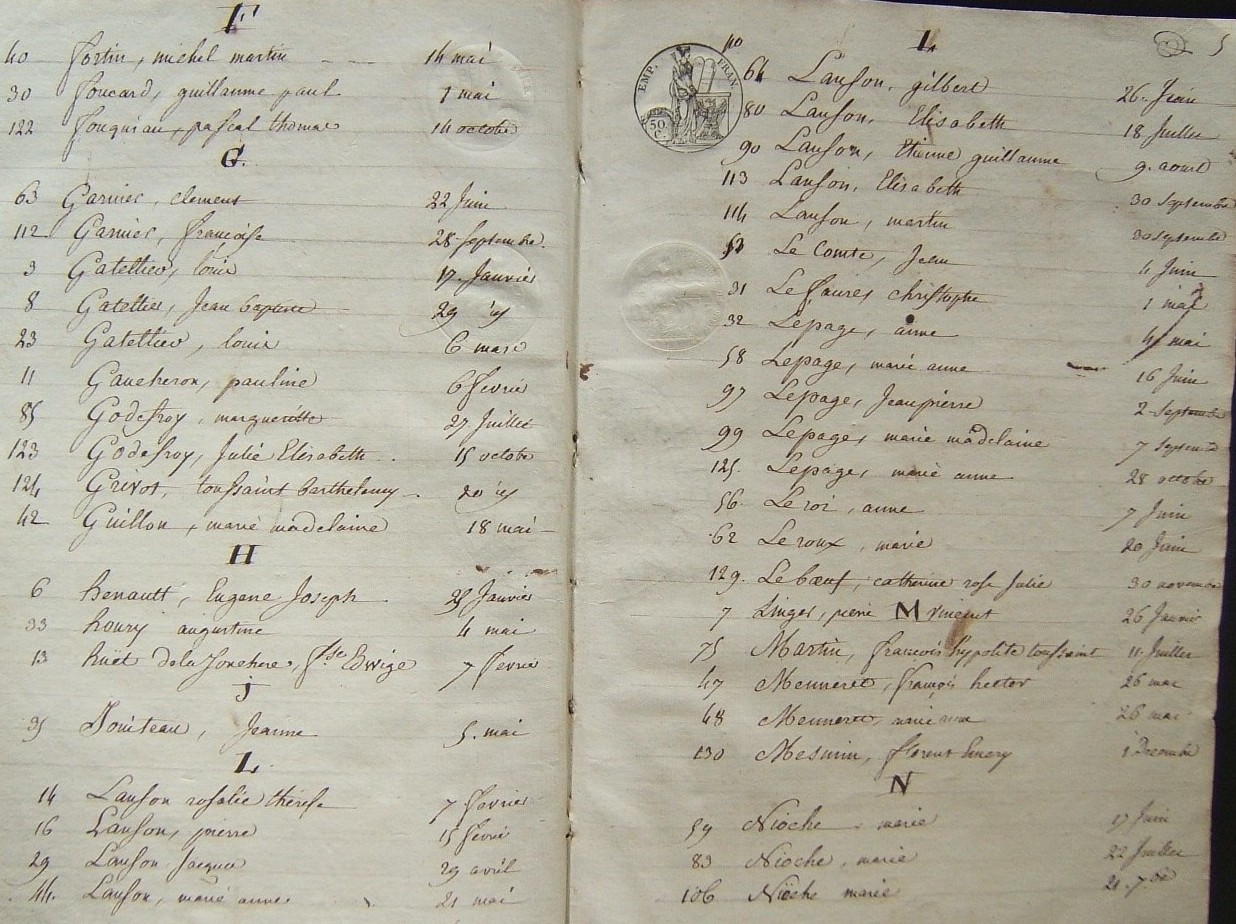 F
40 fortin, michel martin 14 mai
30 foucard, guillaume paul 1 mai
122 fouquiau, pascal thomas 14 octobre
G.
63 Garnier, clement 22 Juin
112 Garnier, francoise 28 septembre.
3 Gatellier, louis 17 Janvier
8 Gatellier, Jean baptiste 29 id
23 Gatellier, louis 6 mars
11 Gaucheron, pauline 6 fevrier
85 Godefroy, margueritte 27 Juillet
123 Godefroy, Julie Elisabeth 15 octobre
124 Grivot, toussaint barthelemy 20 id
42 Guillon, marie madelaine 18 mai
H
6 henault, Eugene Joseph 25 Janvier
33 houry augustine 4 mai
13 huet de la Jonchere, Edwige 7 fevrier
j
35 Joniteau, Jeanne 5. mai
L.
14 Lanson rosalie thérèse 7 fevrier
16 Lanson, pierre 15 fevrier
29 Lanson Jacques 29 avril
44. Lanson, marie anne 21 mai
L 5
EMP. FRAN.
50 C.
64 Lanson, gilbert 26 Juin
80 Lanson, Elisabeth 18 Juillet
90 Lanson, Etienne guillaume 9. aout
113 Lanson, Elisabeth 30 septembre
114 Lanson, martin 30 septembre
53 Le Comte, Jean 4 Juin
31 Le faures christophe 1 mai
32 Lepage, anne 4 mai
58 Lepage, marie anne 16 Juin
97 Lepage, Jean pierre 2 Septembre
99 Lepage, marie madelaine 7 septembre
125. Lepage, marie anne 28 octobre
56 Leroi, anne 7 Juin
62 Leroux, marie 20 Juin
129. Lebœuf, catherine rose Julie 30 novembre
7 Linger, pierre vincent 26 Janvier
M
75 Martin, françois hypolite toussaint 11 Juillet
47 Menneret, françois hector 26 mai
48 Menneret, marie anne 26 mai
130 Mesmin, florent Emery 1 Decembre
N
59 Nioche, marie 17 Juin
83 Nioche, marie 22 Juillet
106 Nioche marie 21. 7bre